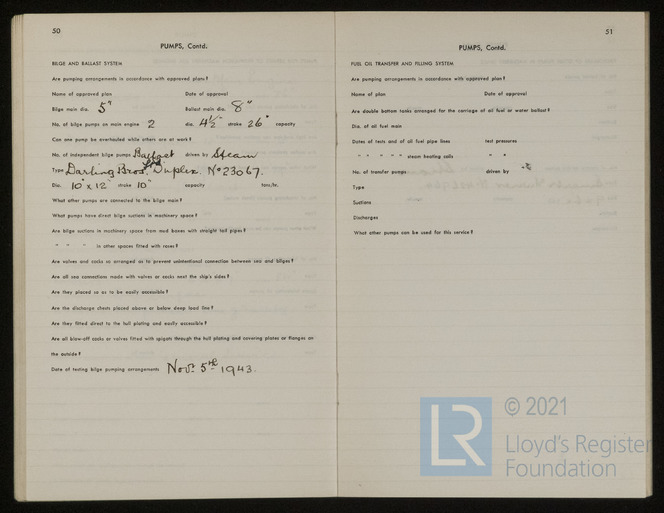 50
PUMPS, Contd.
BILGE AND BALLAST SYSTEM
Are pumping arrangements in accordance with approved plans?
Name of approved plan Date of approval
Bilge main dia. 5" Ballast main dia. 8"
No. of bilge pumps on main engine 2 dia. 4½" stroke 26" capacity
Can one pump be overhauled while others are at work?
No. of independent bilge pumps Ballast driven by Steam
Type Darling Bros. Ltd Duplex. No 23067.
Dia. 10 x 12" stroke 10" capacity tons/hr.
What other pumps are connected to the bilge main?
What pumps have direct bilge suctions in machinery space?
Are bilge suctions in machinery space from mud boxes with straight tail pipes?
" " " in other spaces fitted with roses?
Are valves and cocks so arranged as to prevent unintentional connection between sea and bilges?
Are all sea connections made with valves or cocks next the ship's sides?
Are they placed so as to be easily accessible?
Are the discharge chests placed above or below deep load line?
Are they fitted direct to the hull plating and easily accessible?
Are all blow-off cocks or valves fitted with spigots through the hull plating and covering plates or flanges on
the outside?
Date of testing bilge pumping arrangements Nov. 5th 1943.
51
PUMPS, Contd.
FUEL OIL TRANSFER AND FILLING SYSTEM
Are pumping arrangements in accordance with approved plans?
Name of plan Date of approval
Are double bottom tanks arranged for the carriage of oil fuel or water ballast?
Dia. of oil fuel main
Dates of tests and of oil fuel pipe lines test pressures
" " " " " steam heating coils " "
No. of transfer pumps driven by
Type
Suctions
Discharges
What other pumps can be used for this service?
LR
© 2021
Lloyd's Register
Foundation